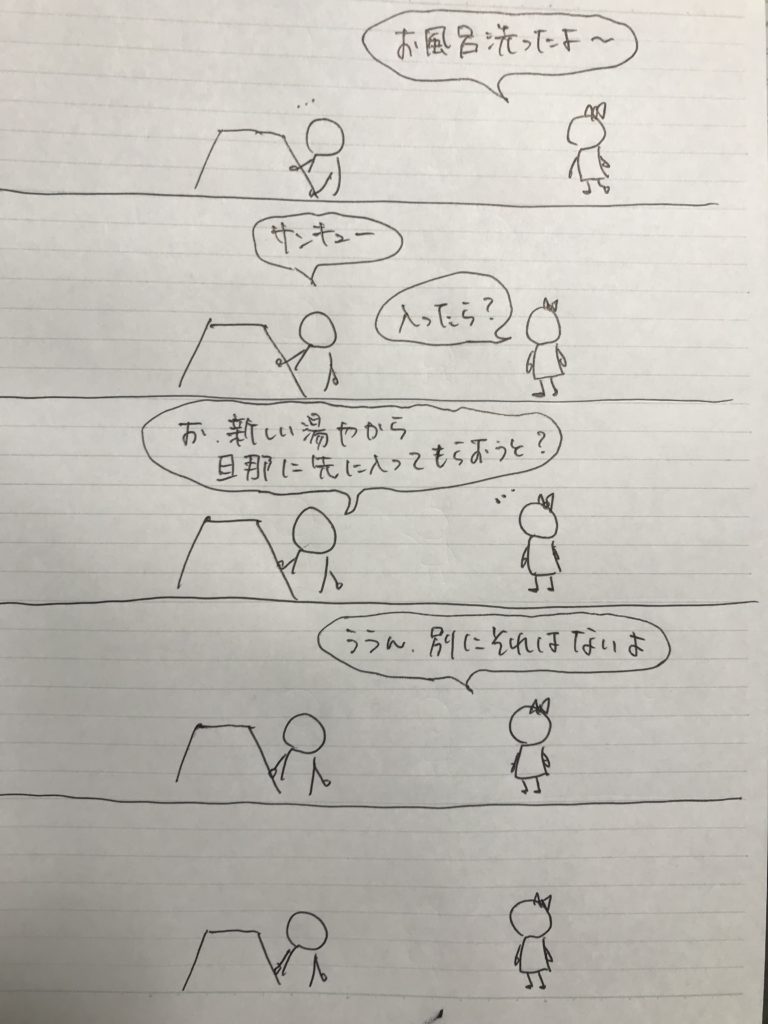 お風呂洗ったよ〜
サンキュー
入ったら？
お、新しい湯やから
旦那に先に入ってもらおうと？
ううん、別にそれはないよ